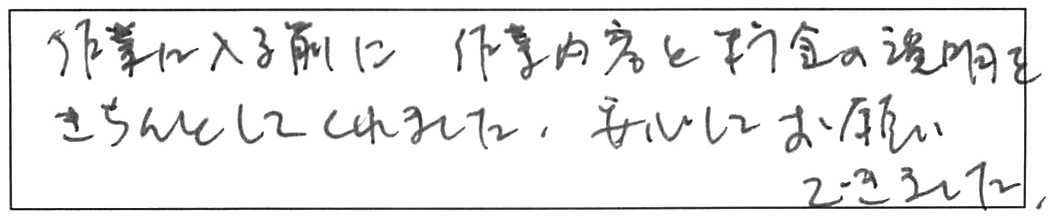 作業に入る前に 作業内容と料金の説明を
きちんとしてくれました。安心してお願い
できました。